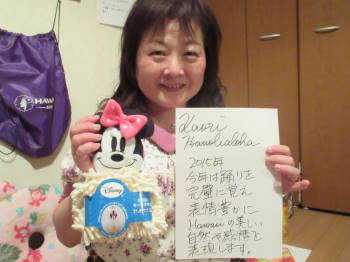 Kaori
Hanoliialoha
2015年
今年は踊りを
完璧に覚え
表情豊かに
Hawaiiの美しい
自然や感情を
表現します。
Disney
HAWA